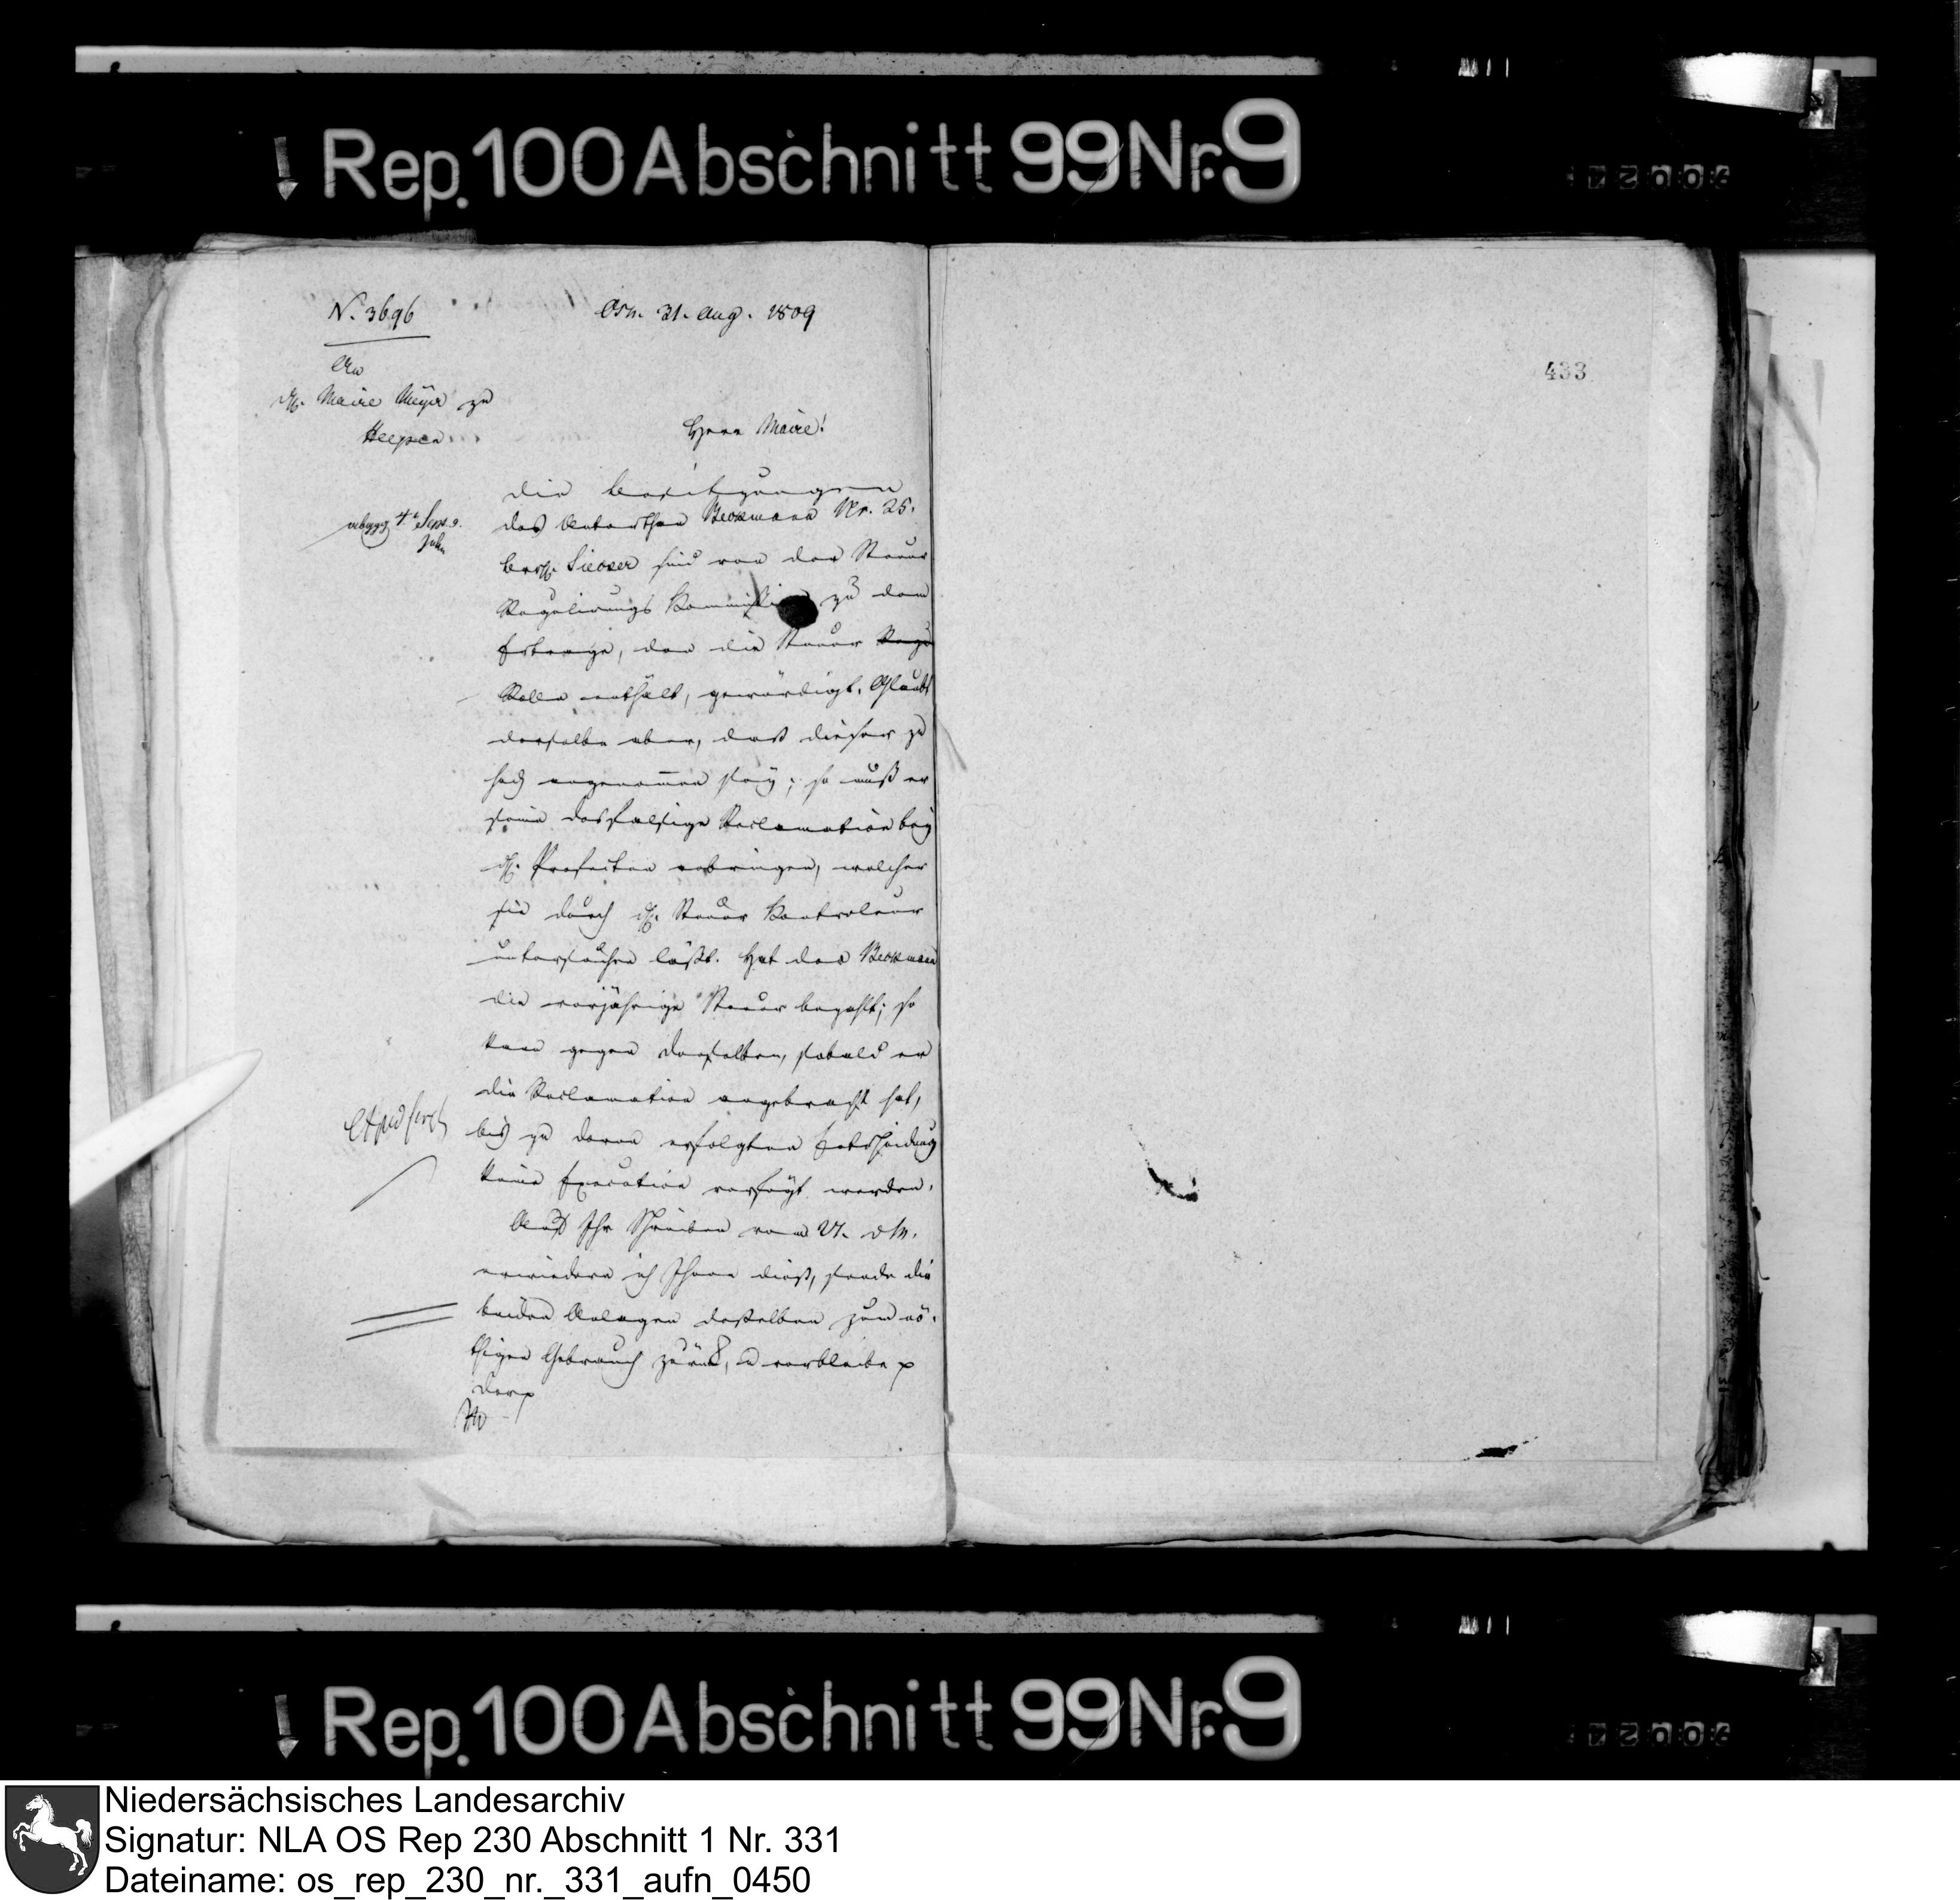 Rep. 100 Abschnitt 99 Nr. 9
N. 3696
Osn. 31. Aug. 1809
An
H. Maire Meyer zu
Heepen
Herr Maire!
433
Die Besitzungen
des Unterthan Beckmann Nr. 25.
Bersch. Sieker sind von der Steuer
Regulirungs Kommission zu dem
Ertrage, den die Steuer
Rolle enthält, gewürdigt. Glaubt
derselbe aber, daß dieser zu
hoch angenommen sey; so muß er
seine desfalsige Reclamation bey
H. Prefecten anbringen, welcher
sie durch H. Steuer Kontroleur
untersuchen läßt. Hat der Beckmann
die vorjährige Steuer bezahlt; so
kann gegen denselben, sobald er
die Reclamation angebracht hat,
bis zu deren erfolgten Entscheidung
keine Execution verfügt werden.
Auf Ihr Schreiben vom 21. d. M.
erwiedere ich Ihnen dieß, sende die
beiden Anlagen desselben zum nö-
thigen Gebrauch zurück, u verbleibe p
Derp
abgeg 4t Sept. 9.
Rep. 100 Abschnitt 99 Nr. 9
Niedersächsisches Landesarchiv
Signatur: NLA OS Rep 230 Abschnitt 1 Nr. 331
Dateiname: os_rep_230_nr._331_aufn_0450